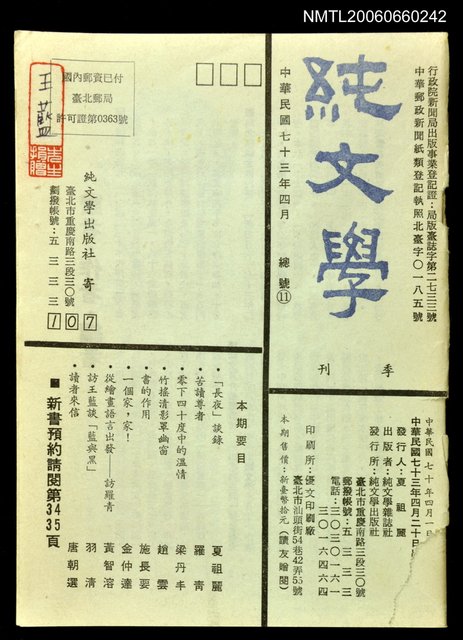 NMTL20060660242
行政院新聞局出版事業登記證：局版臺誌字第二七三三號
中華郵政新聞紙類登記執照北臺字〇一八五號
純文學
季刊
中華民國七十三年四月
總號⑪
國內郵資已付
臺北郵局
許可證第0363號
王藍
先生
捐贈
純文學出版社　寄
臺北市重慶南路三段三〇號
劃撥帳號：五三三三
107
中華民國七十年四月一日
中華民國七十三年四月二十日
發行人：夏祖麗
出版者：純文學雜誌社
發行所：純文學出版社
臺北市重慶南路三段三〇號
郵撥帳號：五三三三
電話：三〇三二〇六一
三〇一六四六四
印刷所：優文印刷廠
臺北市汕頭街54巷42弄55號
本期售價：新臺幣拾元（讀友贈閱）
本期要目
・「長夜」談錄　夏祖麗
・苦讀尊者　羅青
・零下四十度中的溫情　梁丹丰
・竹搖清影罩幽窗　趙雲
・書的作用　施長要
・一個家，家！　金仲達
・從繪畫語言出發——訪羅青　黃智溶
・訪王藍談「藍與黑」　羽清
・讀者來信　唐朝選
■新書預約請閱第34 35頁